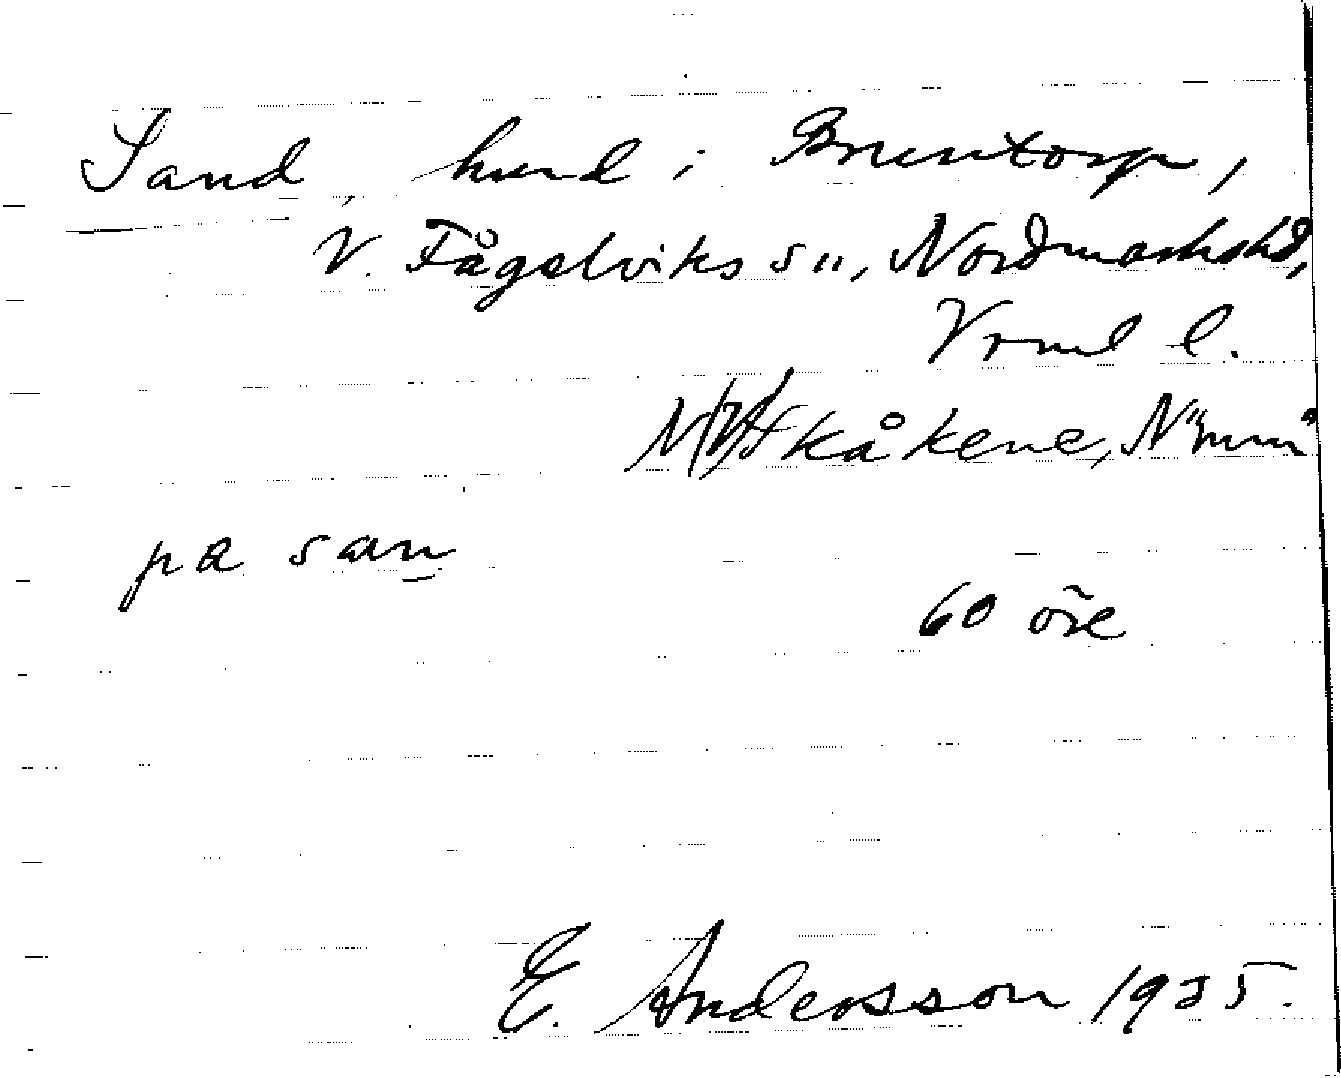 Sand, hmd i Bruntorp,
V. Fågelviks sn, Nordmarkshd,
Vrml l.
N/V Skåkene, N"mm"
pa san
60 öre
E. Andersson 1935.